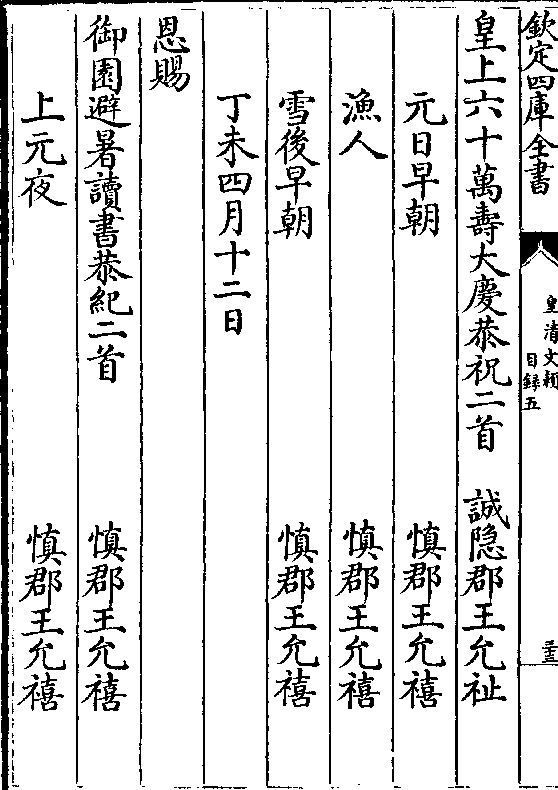 欽定四庫全書
皇清文穎
目録五
皇上六十萬壽大慶恭祝二首 誠隐郡王允祉
元日早朝 慎郡王允禧
漁人 慎郡王允禧
雪後早朝 慎郡王允禧
丁未四月十二日
恩賜
御園避暑讀書恭紀二首 慎郡王允禧
上元夜 慎郡王允禧